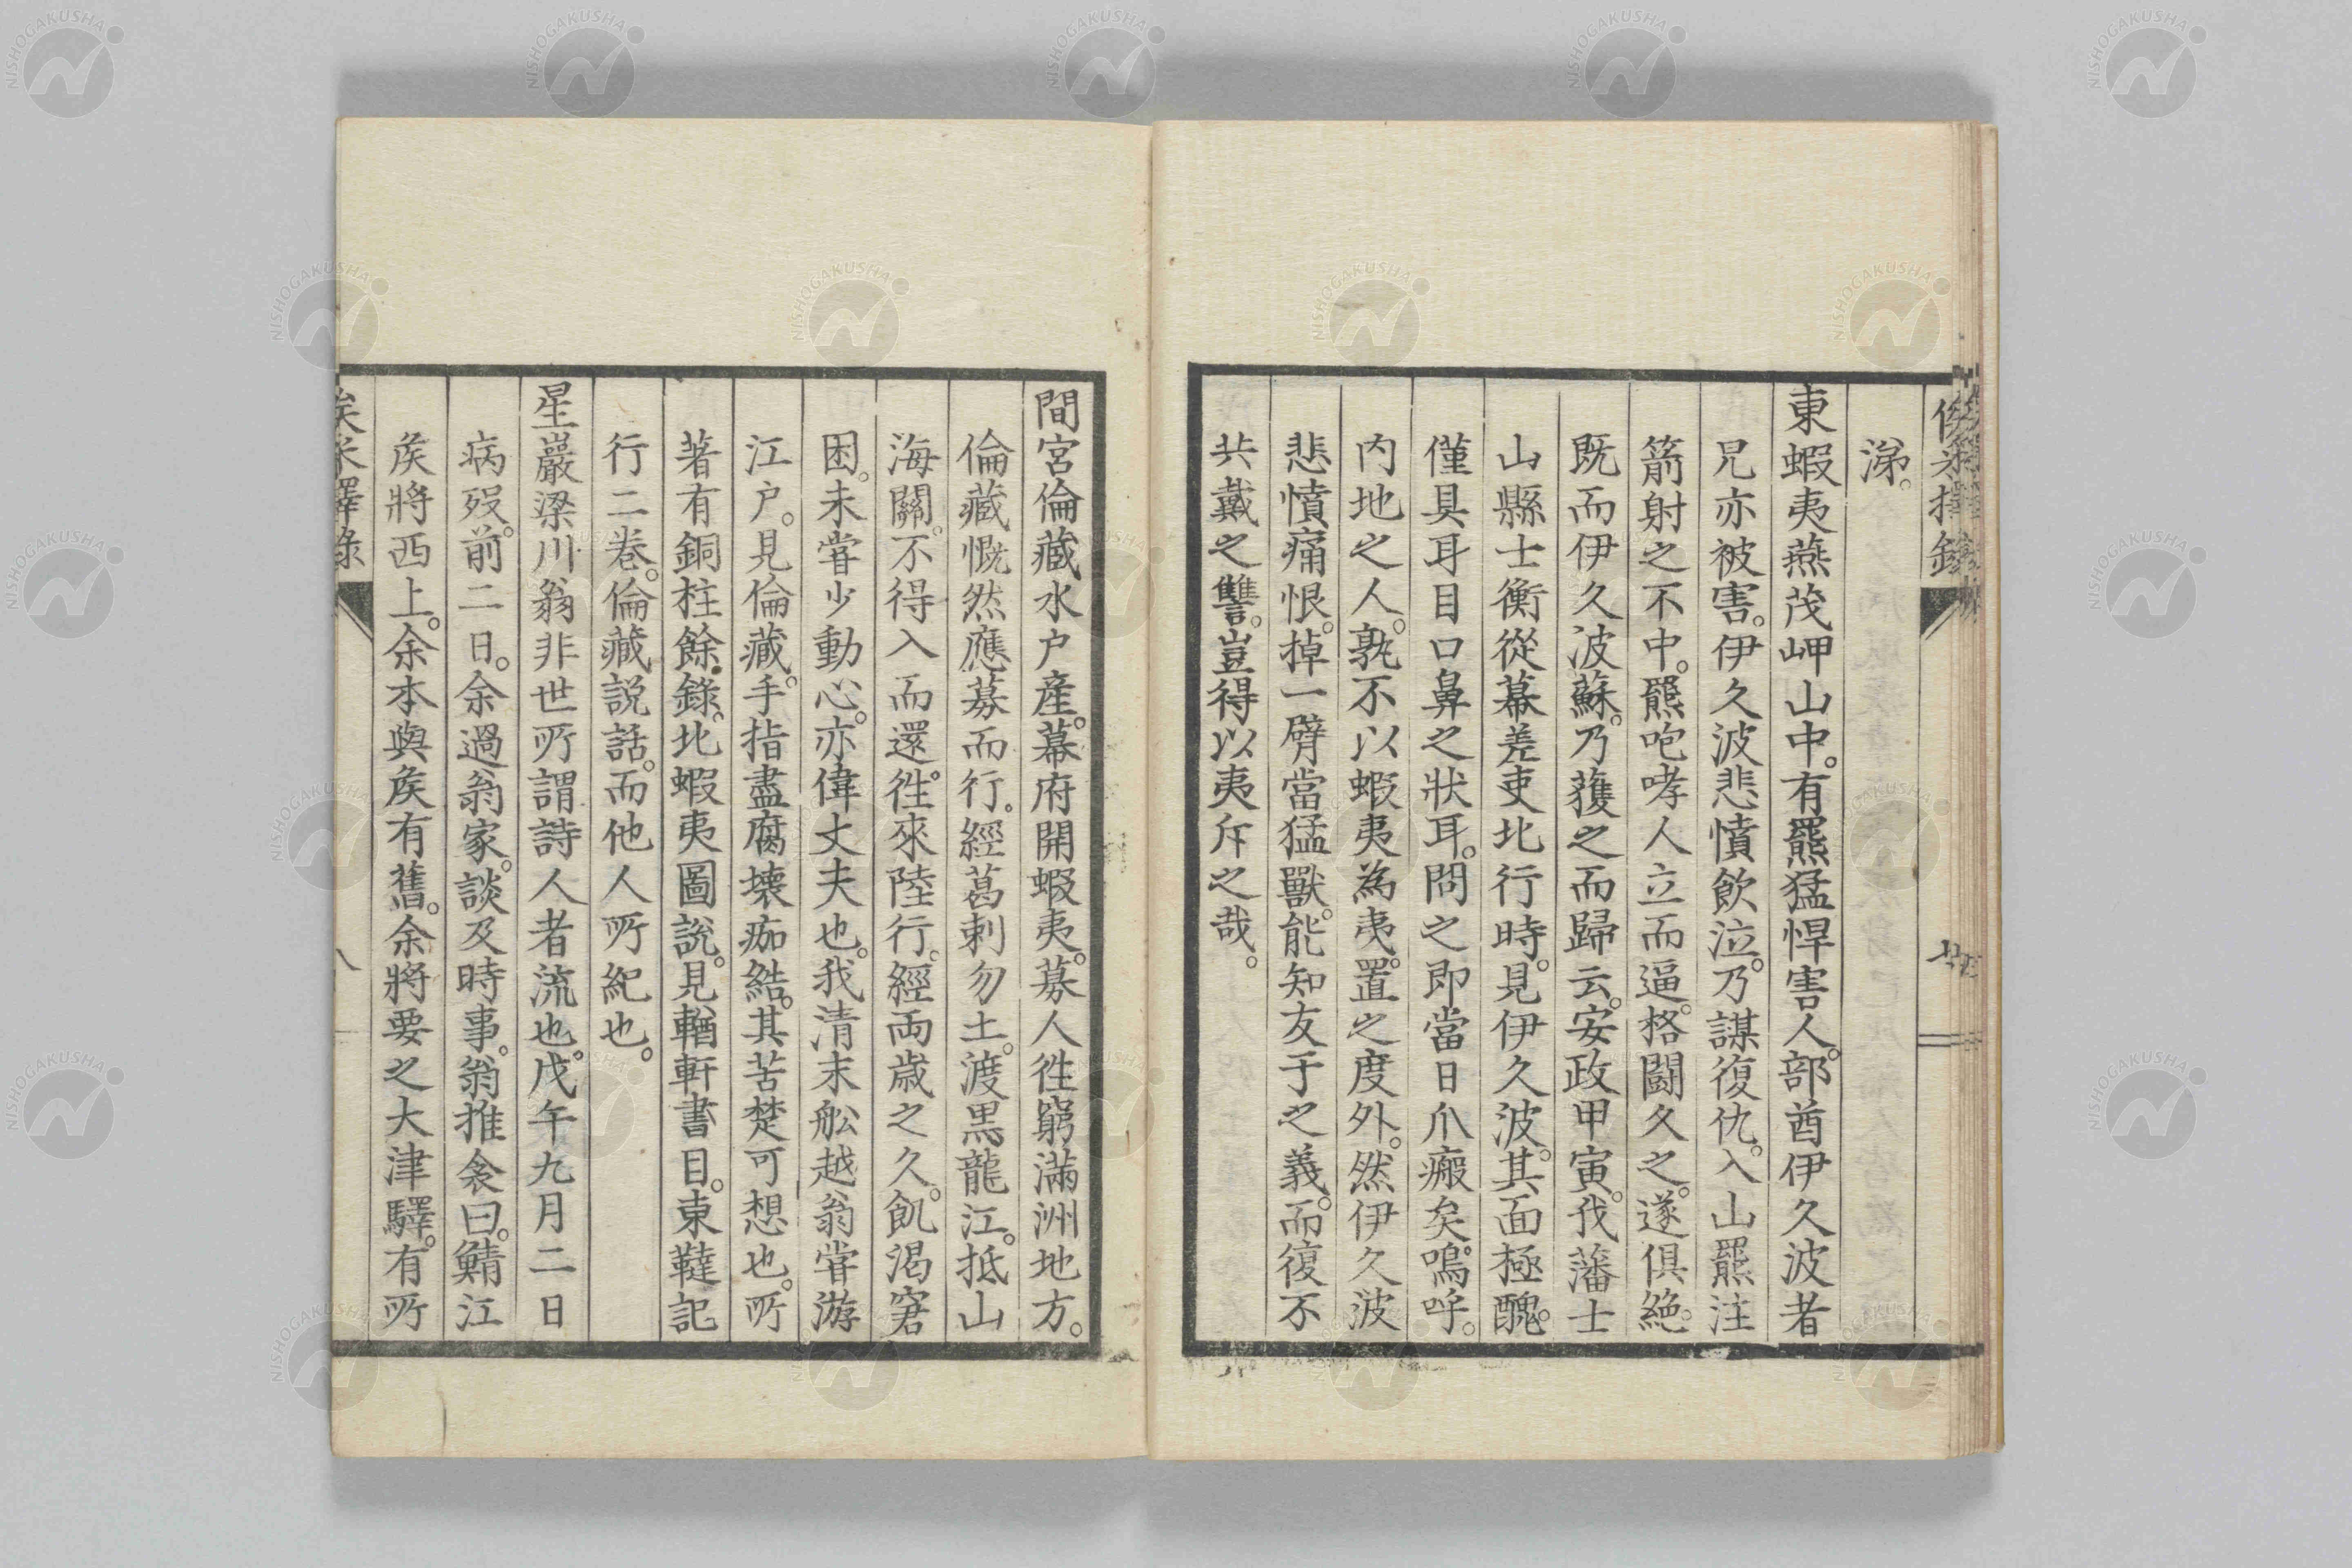 涕。
東蝦夷燕茂岬山中。有羆猛悍害人。部酋伊久波者
兄亦被害。伊久波悲憤飲泣。乃謀復仇。入山羆注
箭射之不中。羆咆哮人立而逼。格闘久之。遂俱絶。
既而伊久波蘇。乃獲之而歸云。安政甲寅。我藩士
山縣士衡從幕差吏北行時。見伊久波。其面極醜。
僅具耳目口鼻之狀耳。問之即當日爪瘢矣。嗚呼。
内地之人。孰不以蝦夷為夷。置之度外。然伊久波
悲憤痛恨。掉一臂當猛獸。能知友于之義。而復不
共戴之讐。豈得以夷斥之哉。
間宮倫藏水户産。幕府開蝦夷。募人徃窮滿洲地方。
倫藏慨然應募而行。經葛剌勿土。渡黒龍江。抵山
海關。不得入而還。徃來陸行。經両歳之久。飢渇窘
困。未甞少動心。亦偉丈夫也。我清末舩越翁甞游
江户。見倫藏。手指盡腐壊痂結。其苦楚可想也。所
著有銅柱餘錄。北蝦夷圖說。見輶軒書目。東韃記
行二卷。倫藏説話。而他人所紀也。
星巖梁川翁非世所謂詩人者流也。戊午九月二日
病歿。前二日。余過翁家。談及時事。翁推衾曰。鯖江
矦將西上。余本與矦有舊。余將要之大津驛。有所
八